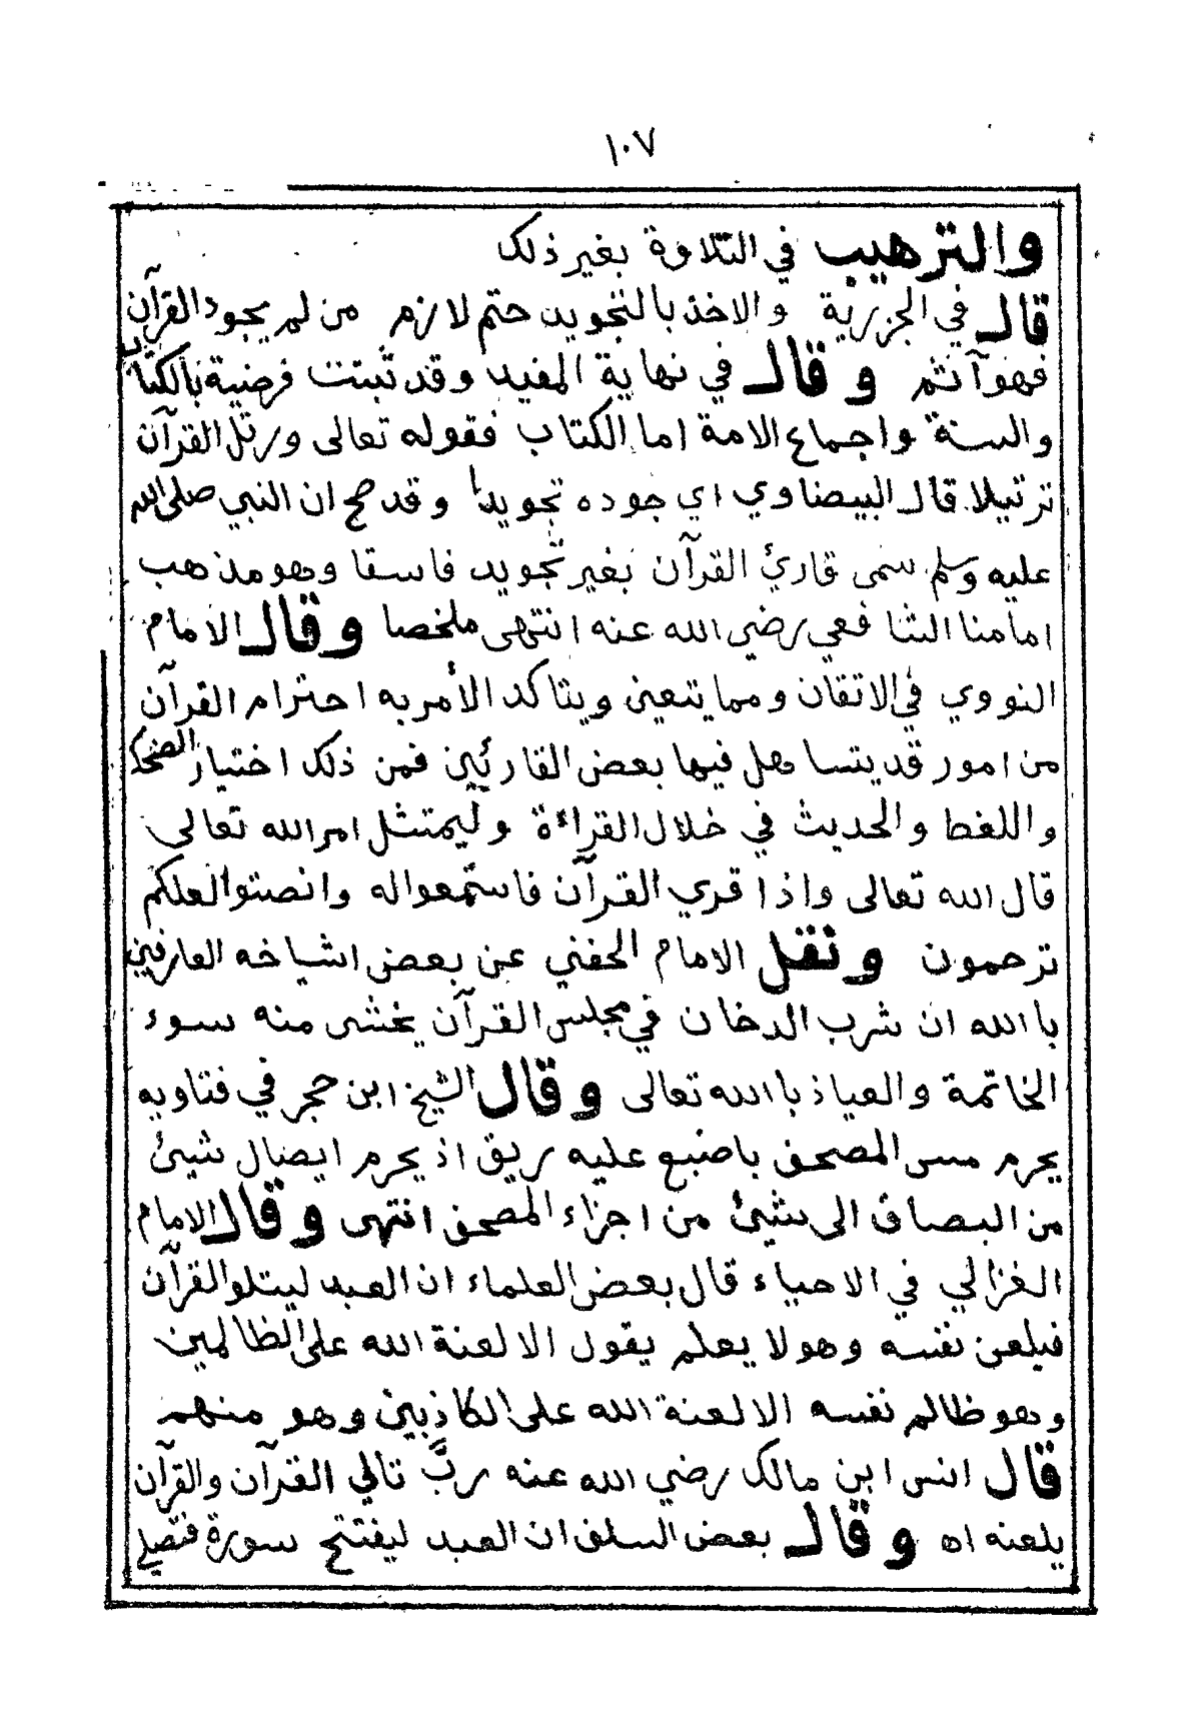 ١٠٧
والترهيب في التلاوة بغير ذلك
قال في الجزرية والاخذ بالتجويد حتم لازم من لم يجود القرآن
فهو آثم وقال في نهاية المفيد وقد ثبتت فرضية بالكتاب
والسنة واجماع الامة اما الكتاب فقوله تعالى ورتل القرآن
ترتيلا قال البيضاوي اي جوده تجويدا وقد صح ان النبي صلى الله
عليه وسلم سمى قارئ القرآن بغير تجويد فاسقا وهو مذهب
امامنا الشافعي رضي الله عنه انتهى ملخصا وقال الامام
النووي في الاتقان ومما يتعين ويتأكد الأمر به احترام القرآن
من امور قد يتساهل فيها بعض القارئين فمن ذلك اختيار الضحك
واللغط والحديث في خلال القراءة وليمتثل امر الله تعالى
قال الله تعالى واذا قرئ القرآن فاستمعوا له وانصتوا لعلكم
ترحمون ونقل الامام الحفني عن بعض اشياخه العارفين
باالله ان شرب الدخان في مجلس القرآن يخشى منه سوء
الخاتمة والعياذ باالله تعالى وقال الشيخ ابن حجر في فتاويه
يحرم مس المصحف باضبع عليه ريق اذ يحرم ايصال شيئ
من البصاق الى شيئ من اجزاء المصحف انتهى وقال الامام
الغزالي في الاحياء قال بعض العلماء ان العبد ليتلو القرآن
فيلعن نفسه وهو لا يعلم يقول الا لعنة الله على الظالمين
وهو ظالم نفسه الا لعنة الله على الكاذبين وهو منهم
قال انس ابن مالك رضي الله عنه ربّ تالي القرآن والقرآن
يلعنه اه وقال بعض السلف ان العبد ليفتتح سورة فتصلي